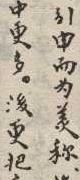 引申而为美称
中更多。後更把